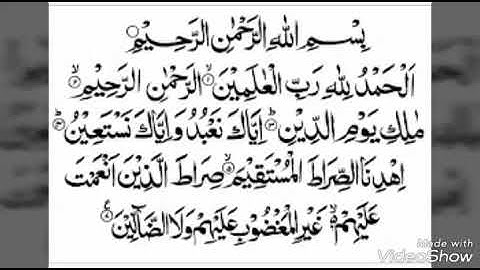 بِسْمِ اللهِ الرَّحْمٰنِ الرَّحِيْمِ
اَلْحَمْدُ لِلّٰهِ رَبِّ الْعٰلَمِيْنَ ۙ الرَّحْمٰنِ الرَّحِيْمِ ۙ
مٰلِكِ يَوْمِ الدِّيْنِ ؕ اِيَّاكَ نَعْبُدُ وَاِيَّاكَ نَسْتَعِيْنُ ؕ
اِهْدِنَا الصِّرَاطَ الْمُسْتَقِيْمَ ۙ صِرَاطَ الَّذِيْنَ اَنْعَمْتَ
عَلَيْهِمْ ۙ غَيْرِ الْمَغْضُوْبِ عَلَيْهِمْ وَلَا الضَّآلِّيْنَ
Made with
VideoShow